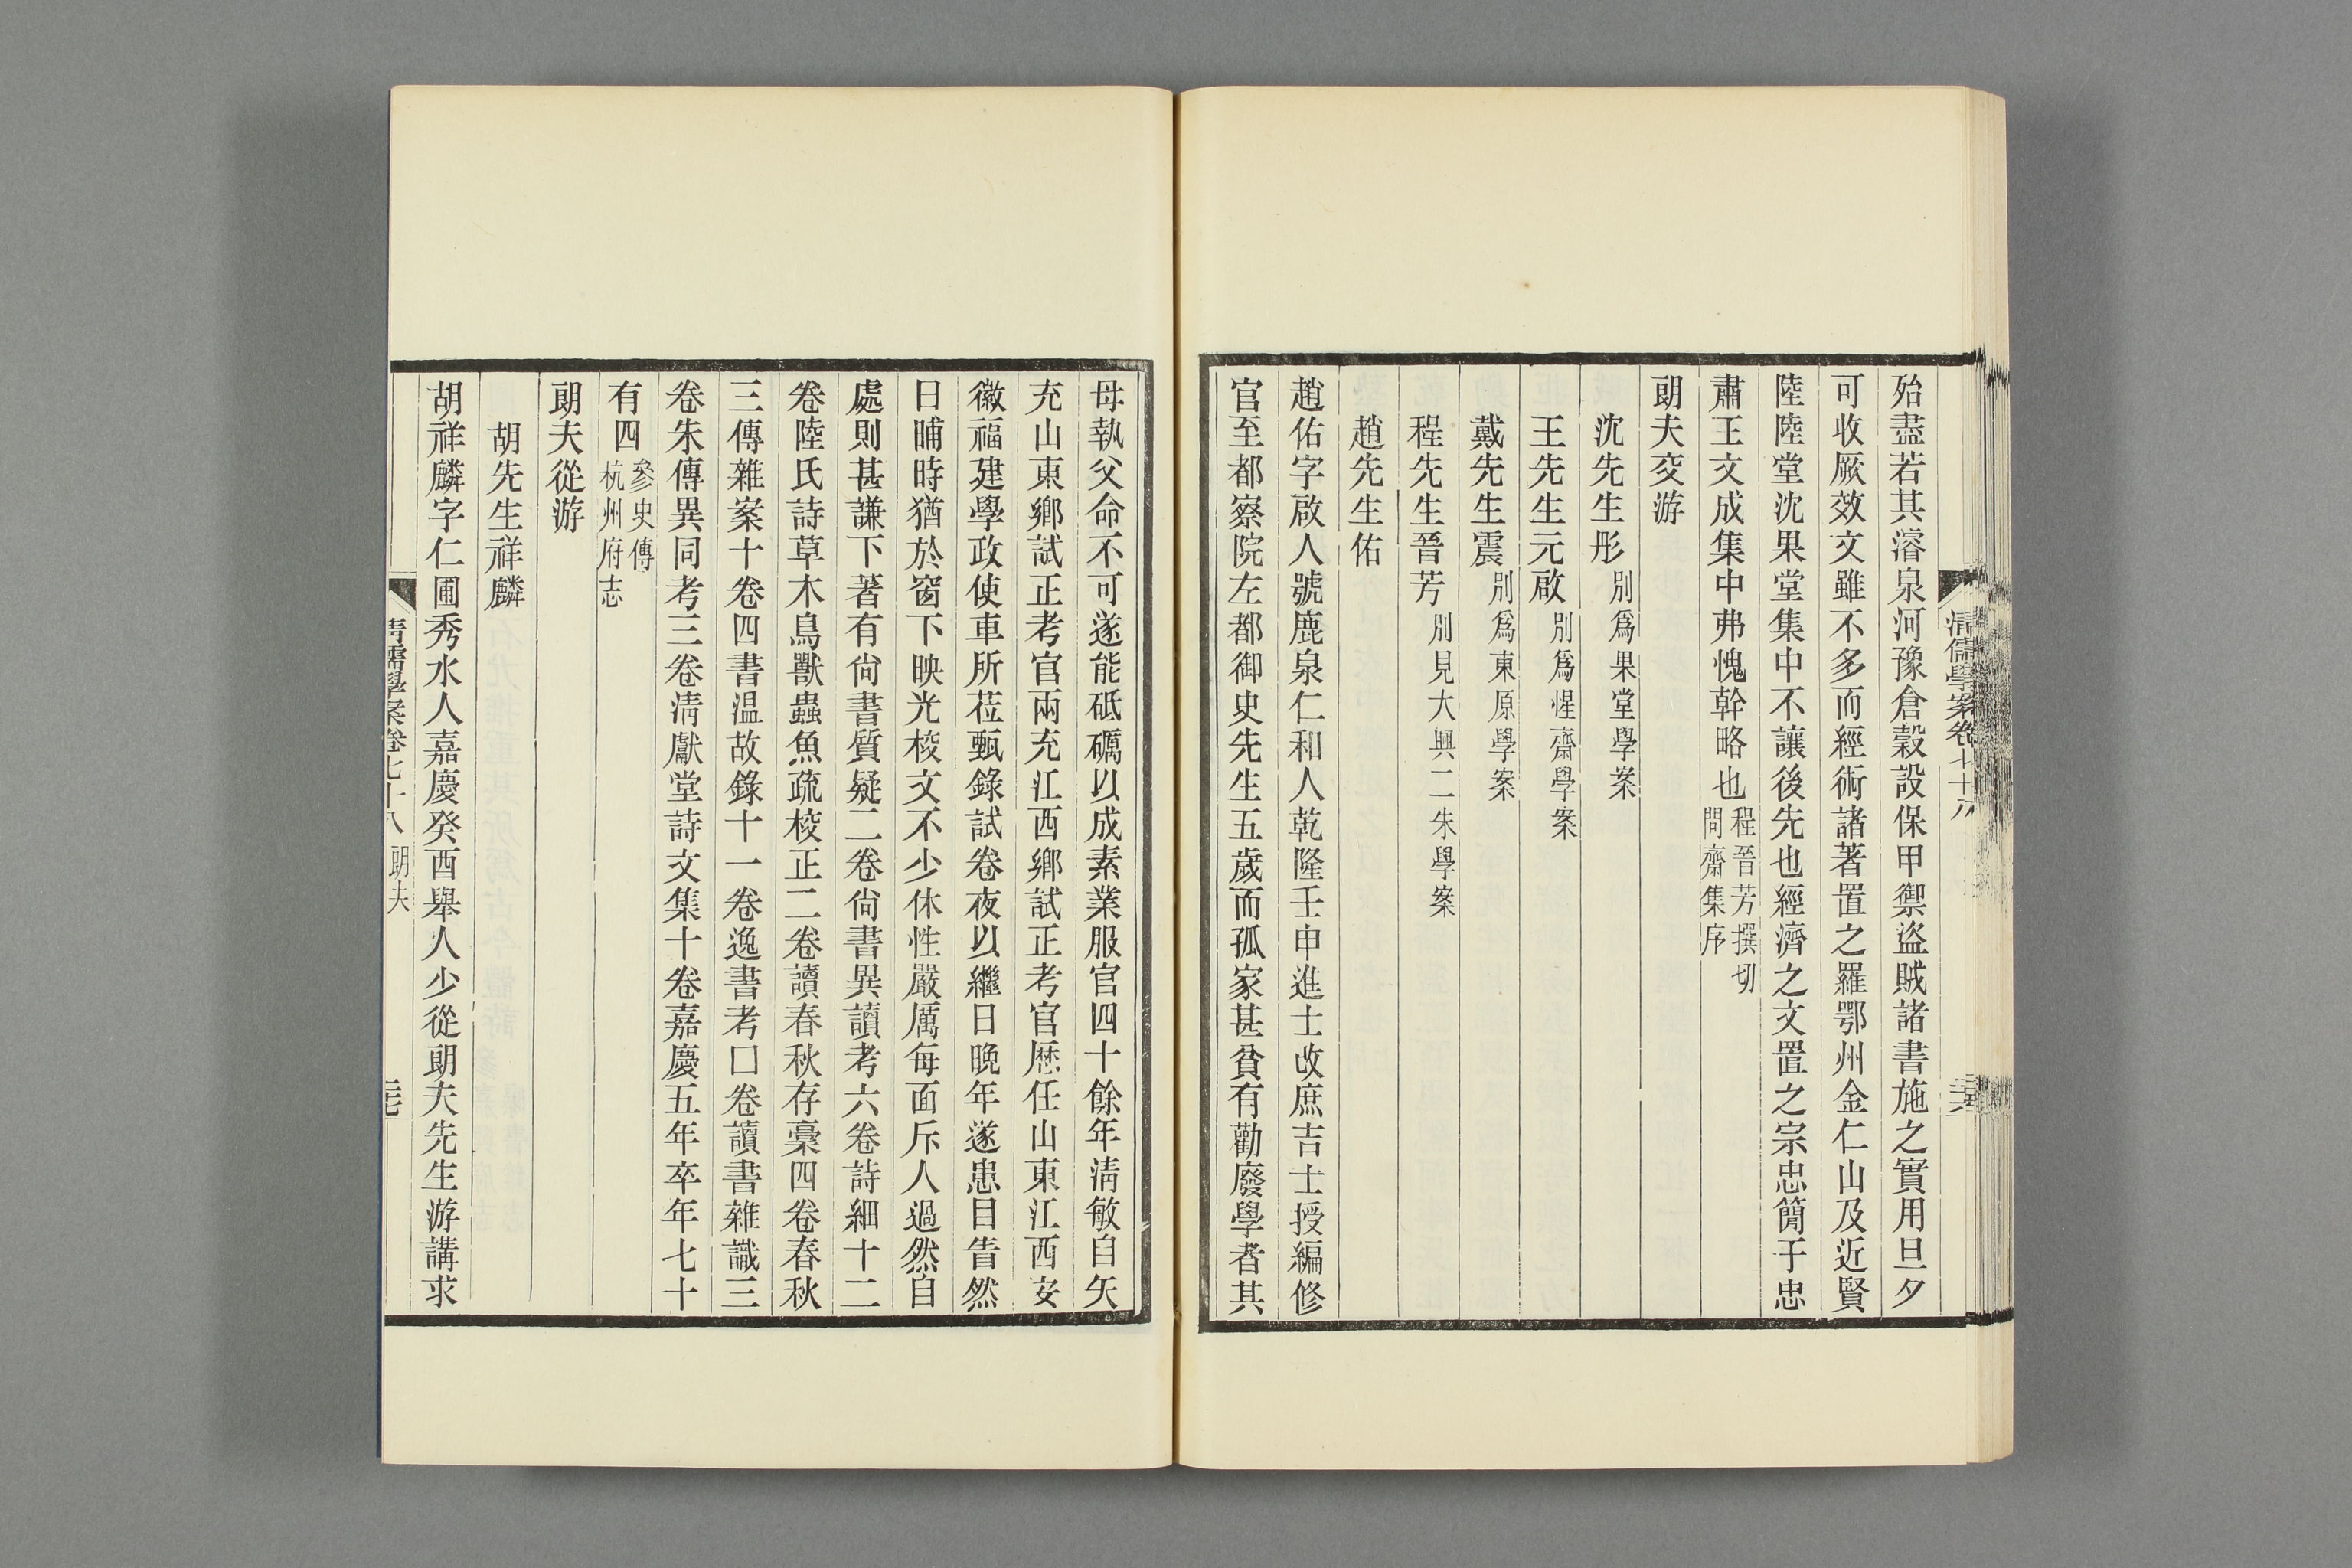 清儒學案卷七十八
殆盡若其濬泉河豫倉穀設保甲禦盜賊諸書施之實用旦夕
可收厥效文雖不多而經術諸著置之羅鄂州金仁山及近賢
陸陸堂沈果堂集中不讓後先也經濟之文置之宗忠簡于忠
肅王文成集中弗愧幹略也程晉芳撰切
問齋集序
朗夫交游
沈先生彤別爲果堂學案
王先生元啟別爲惺齋學案
戴先生震別爲東原學案
程先生晉芳別見大興二朱學案
趙先生佑
趙佑字啟人號鹿泉仁和人乾隆壬申進士改庶吉士授編修
官至都察院左都御史先生五歲而孤家甚貧有勸廢學者其
母執父命不可遂能砥礪以成素業服官四十餘年淸敏自矢
充山東鄉試正考官兩充江西鄉試正考官歷任山東江西安
徽福建學政使車所莅甄錄試卷夜以繼日晚年遂患目眚然
日晡時猶於窗下映光校文不少休性嚴厲每面斥人過然自
處則甚謙下著有尙書質疑二卷尙書異讀考六卷詩細十二
卷陸氏詩草木鳥獸蟲魚疏校正二卷讀春秋存稾四卷春秋
三傳雜案十卷四書温故錄十一卷逸書考囗卷讀書雜識三
卷朱傳異同考三卷淸獻堂詩文集十卷嘉慶五年卒年七十
有四參史傳
杭州府志
朗夫從游
胡先生祥麟
胡祥麟字仁圃秀水人嘉慶癸酉舉人少從朗夫先生游講求
清儒學案卷七十八 朗夫